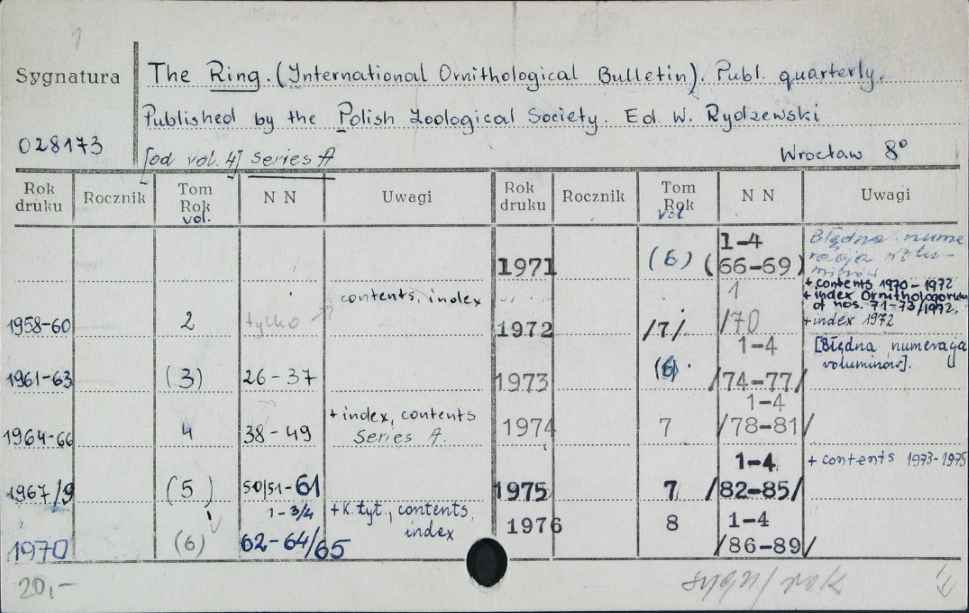 Sygnatura The Ring. (International Ornithological Bulletin). Publ. quarterly.
Published by the Polish Zoological Society. Ed. W. Rydzewski
028173 [od vol. 4] Series A Wrocław 8°
Rok druku Rocznik Tom Rok vol. N N Uwagi Rok druku Rocznik Tom Rok vol. N N Uwagi
1971 (6) 1-4 (66-69) Błędna numeracja
1958-60 2 tylko contents, index 1972 /7/ 1 /70 + contents 1970-1972
+ index Ornithologorum
of nos. 71-73/1972,
+ index 1972
1961-63 (3) 26-37 1973 (6) 1-4 /74-77/ [Błędna numeracja
voluminów].
1964-66 4 38-49 + index, contents
Series A. 1974 7 1-4 /78-81/
1967/9 (5) 50/51-61 1975 7 1-4 /82-85/ + contents 1973-1975
1970 (6) 1-3/4 62-64/65 + k. tyt., contents,
index 1976 8 1-4 /86-89/
20,- sygn/rok